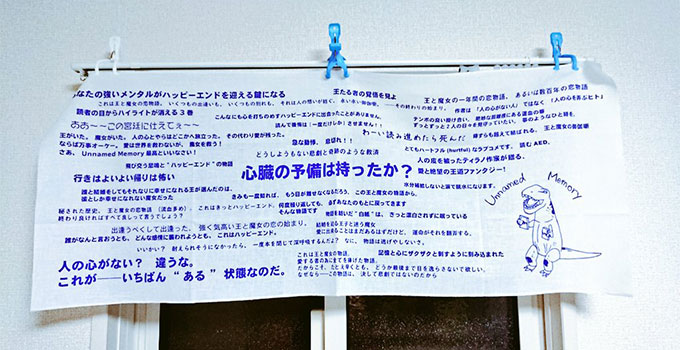 あなたの強いメンタルがハッピーエンドを迎える鍵になる
これは王と魔女の恋物語。いくつもの出逢いも、いくつもの別れも、それは人の想いが紡ぐ、
読者の目からハイライトが消える3巻
おお～～この宮廷に仕えてぇ～～
こんなにも心を打ちのめすハッピーエンドに出会ったことがありません。
読んで後悔は「一度だけしか」させません!
王がいた。魔女がいた。人の心とやらはどこかへ旅立った。その代わり愛が残った。
ならば万事オーケー。愛は世界を救わないが、魔女を救う!
さあ、Unnamed Memory 最高といいなさい!
急な動悸、息切れ!
飛び交う悲鳴と“ハッピーエンド”の物語
どうしようもない悲劇と奇跡のような救済
行きはよいよい帰りは怖い
心臓の予備は持ったか?
誰と結婚をしてもそれなりに幸せになれる王が選んだのは、
彼としか幸せになれない魔女だった
きみも一度知れば、もう目が離せなくなるだろう、この王と魔女の物語から。
秘された歴史、王と魔女の恋物語(流血多め)、これはきっとハッピーエンド。
終わり良ければすべて良しって言うでしょう?
何度繰り返しても、必ずあなたのもとに戻ってきます
そんな物語です
物語を紡いだ“白紙”は、きっと漂白されずに眠っている
出逢うべくして出逢った、強く気高い王と魔女の恋の始まり。
誰がなんと言おうとも、どんな感情に襲われようとも、これはハッピーエンド。
いいかい? 耐えられそうになかったら、一度本を閉じて深呼吸するんだよ? なに、物語は逃げやしないさ。
人の心がない? 違うな。
これが――いちばん“ある”状態なのだ。
王たる者の覚悟を見よ
王と魔女の一年間の恋物語、あるいは数百年の恋物語
――その終わりの始まり。
作者は「人の心がない人」ではなく「人の心を弄ぶヒト」
わーい読み進めたら死んだ
とてもハートフル(hurtful)なラブコメです。
読むAED。
人の底を知ったテイラノ作家が贈る、
愛と絶望の王道ファンタジー!
水分補給しないと涙で脱水になります。
記憶と心にザクザクと刺すように刻み込まれた
これは王と魔女の物語。
愛する者の為に全てを捧げた物語。
だからこそ、たとえ辛くとも、どうか最後まで目を逸らさないで欲しい。
なぜなら――この物語は、決して悲劇ではないのだから
Unnamed Memory